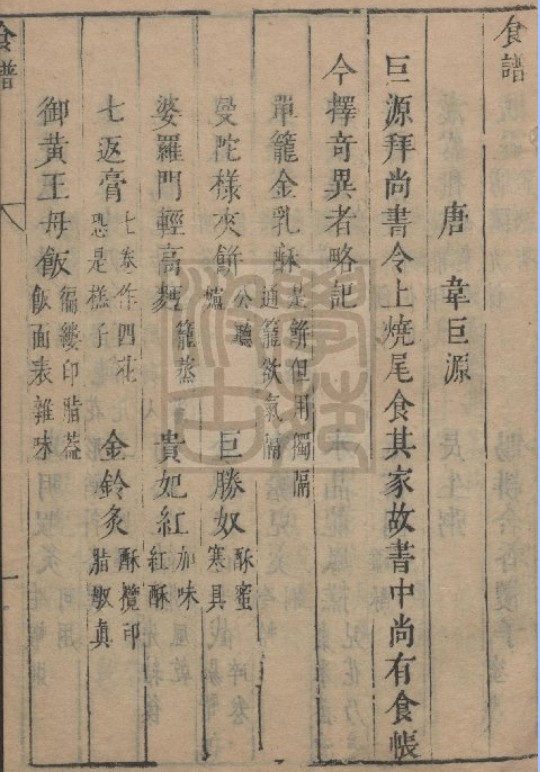 食譜
唐 韋巨源
巨源拜尚書令上燒尾食其家故書中尚有食帳
今擇奇異者略記
單籠金乳酥 是餅但用獨隔通籠欲氣隔
曼陀樣夾餅 公廳爐 巨勝奴 酥蜜寒具
婆羅門輕高麵 籠蒸 貴妃紅 加味紅酥
七返膏 七卷作四花恐是糕子 金鈴炙 酥攪印脂取真
御黃王母飯 徧縷印脂葢飯面表雜味
食譜
一